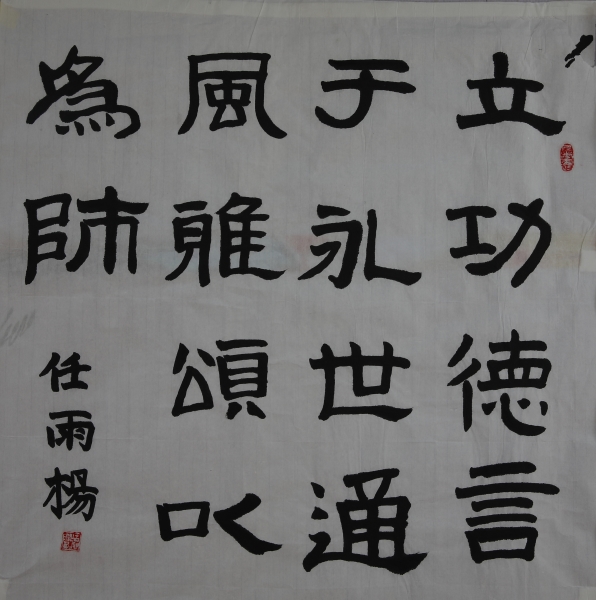 立功德言
于永世通
風雅頌以
為師
任雨楊